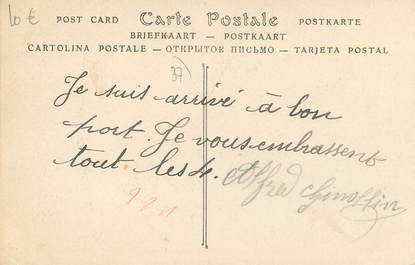 10 €
POST CARD Carte Postale POSTKARTE
BRIEFKAART — POSTKAART
CARTOLINA POSTALE — ОТКРЫТОЕ ПИСЬМО — TARJETA POSTAL
37)
Je suis arrivé à bon
port. Je vous embrassent
tout les 4. Alfred